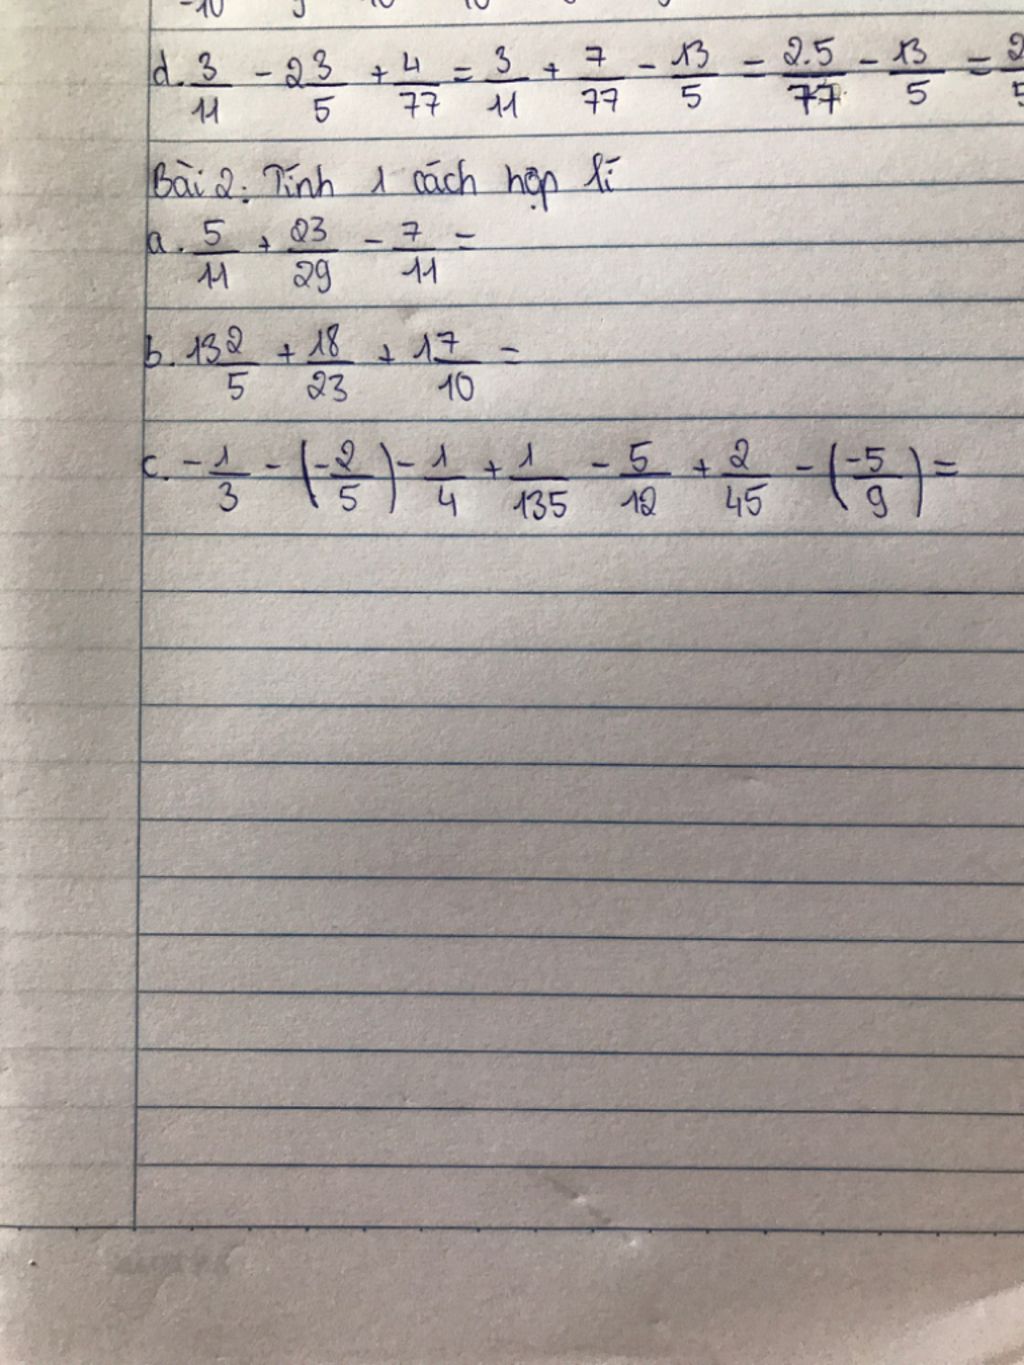 d. 3/11 - 2 3/5 + 4/77 = 3/11 + 7/77 - 13/5 = 2.5/77 - 13/5 =
Bài 2: Tính 1 cách hợp lí
a. 5/11 + 23/29 - 7/11 =
b. 13 2/5 + 18/23 + 1 7/10 =
c. -1/3 - (-2/5) - 1/4 + 1/135 - 5/12 + 2/45 - (-5/9) =